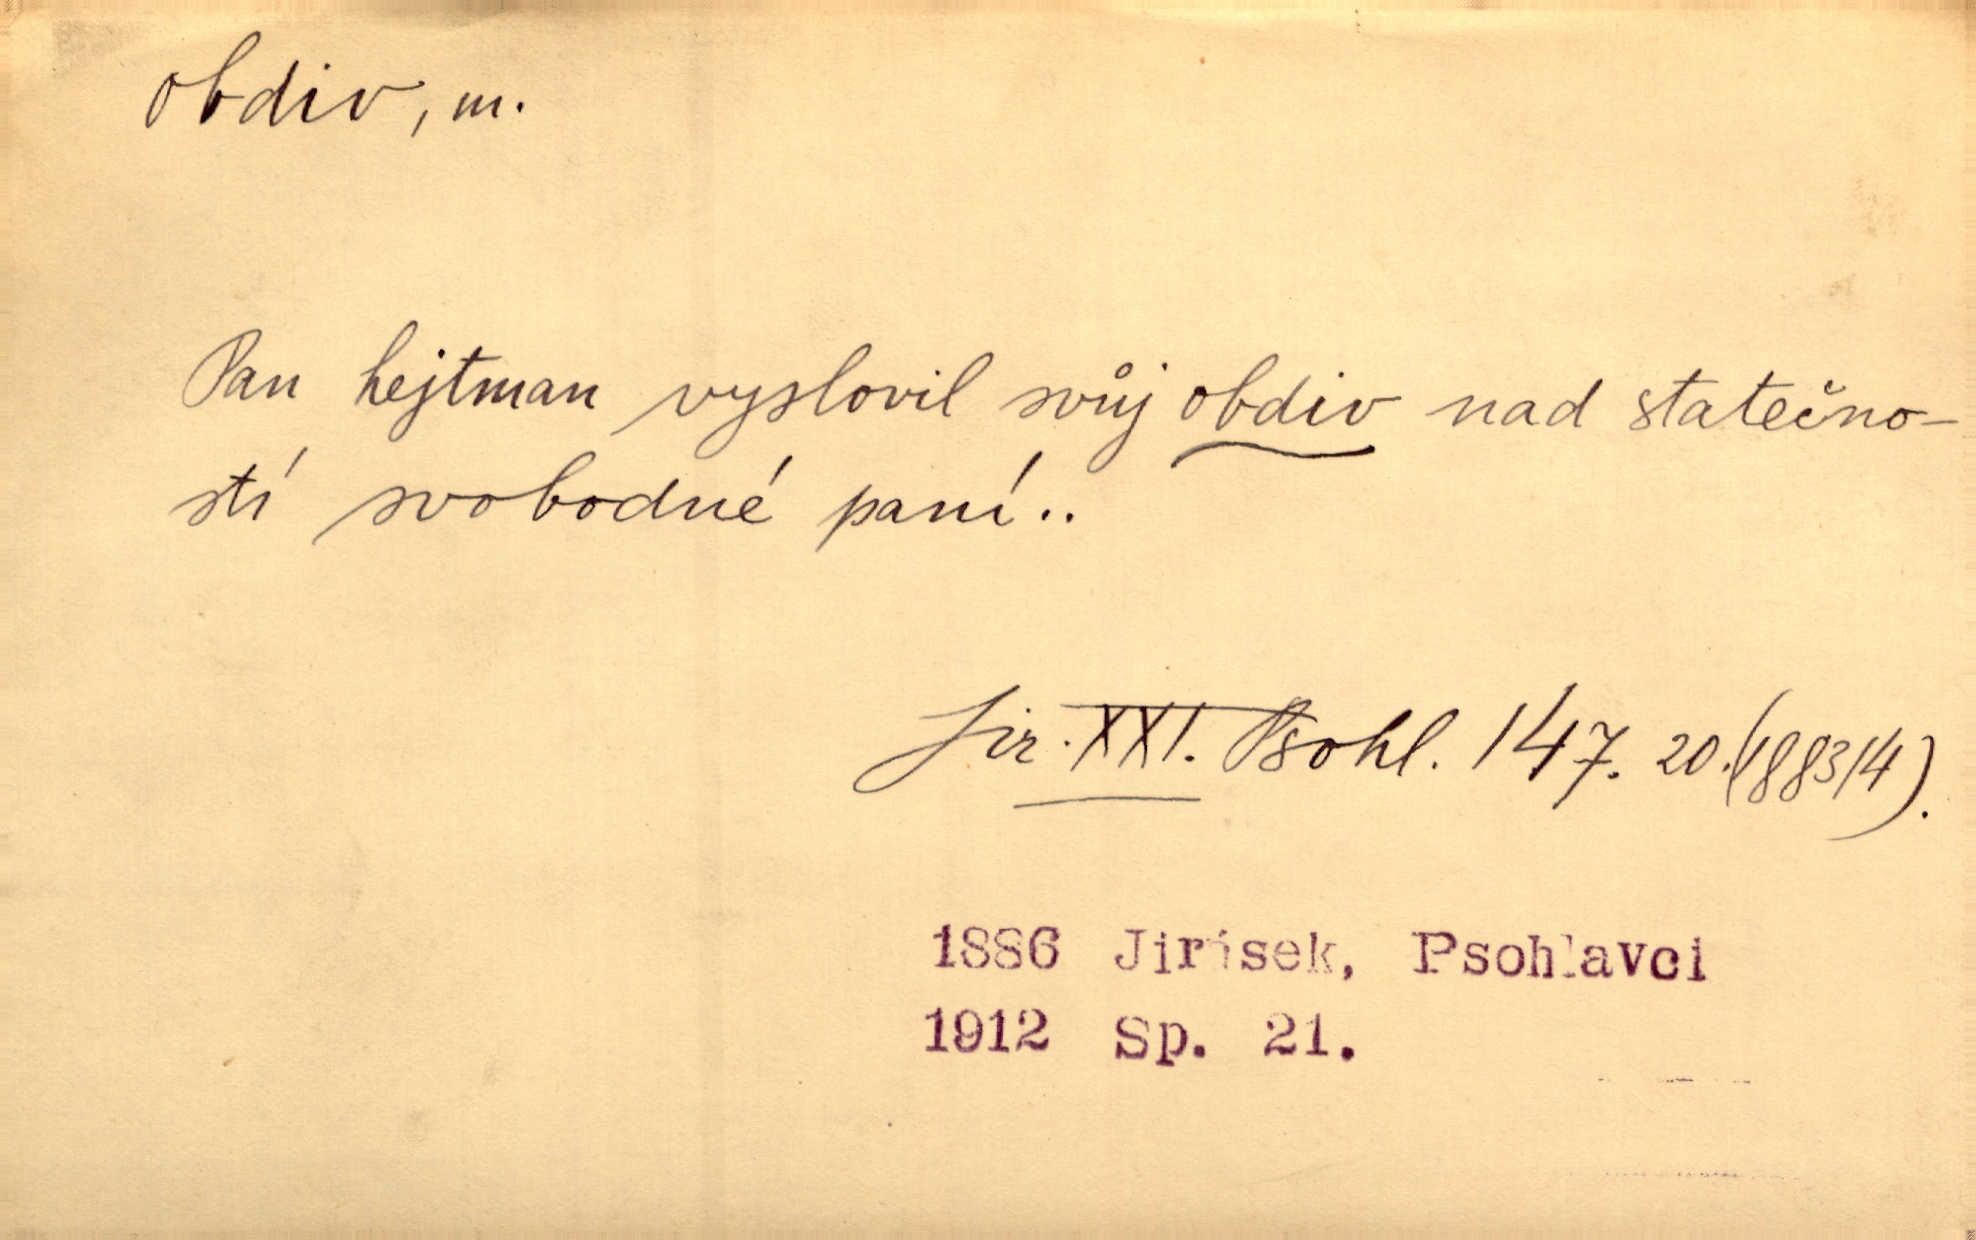 obdiv, m.
Pan hejtman vyslovil svůj obdiv nad statečno-
stí svobodné paní..
Jir. XXI. Psohl. 147. 20. (1883/4).
1886 Jirásek, Psohlavci
1912 Sp. 21.